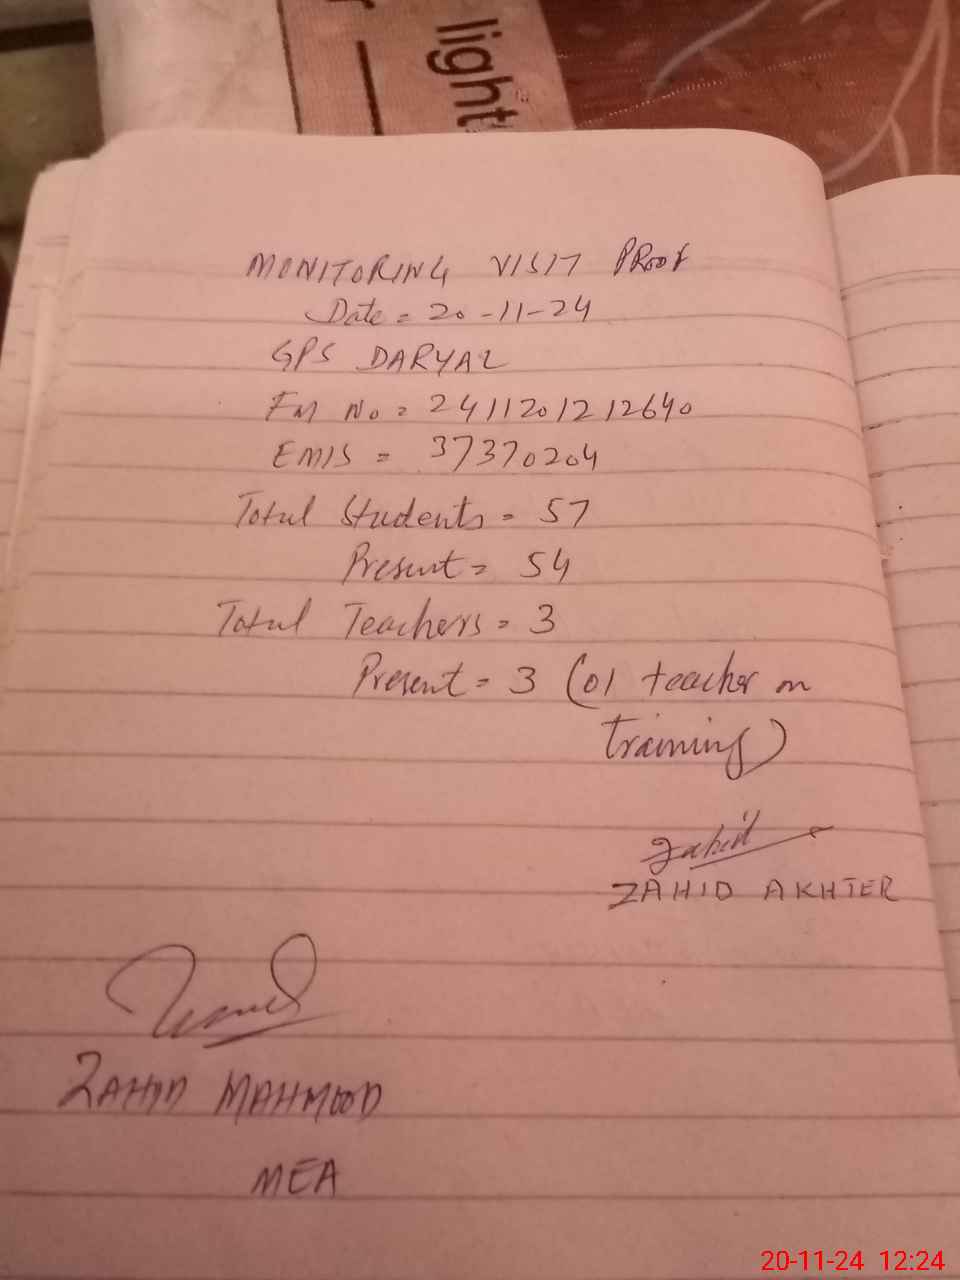 light
MONITORING VISIT PROOF
Date = 20-11-24
GPS DARYAL
FM No = 2411201212640
EMIS = 37370204
Total Students = 57
Present = 54
Total Teachers = 3
Present = 3 (01 teacher on
training)
Zahid
ZAHID AKHTER
ZAHID MAHMOOD
MEA
20-11-24 12:24